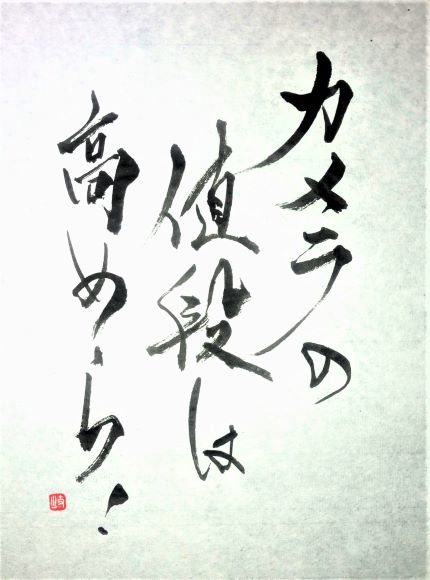 カメラの
値段は
高めら！